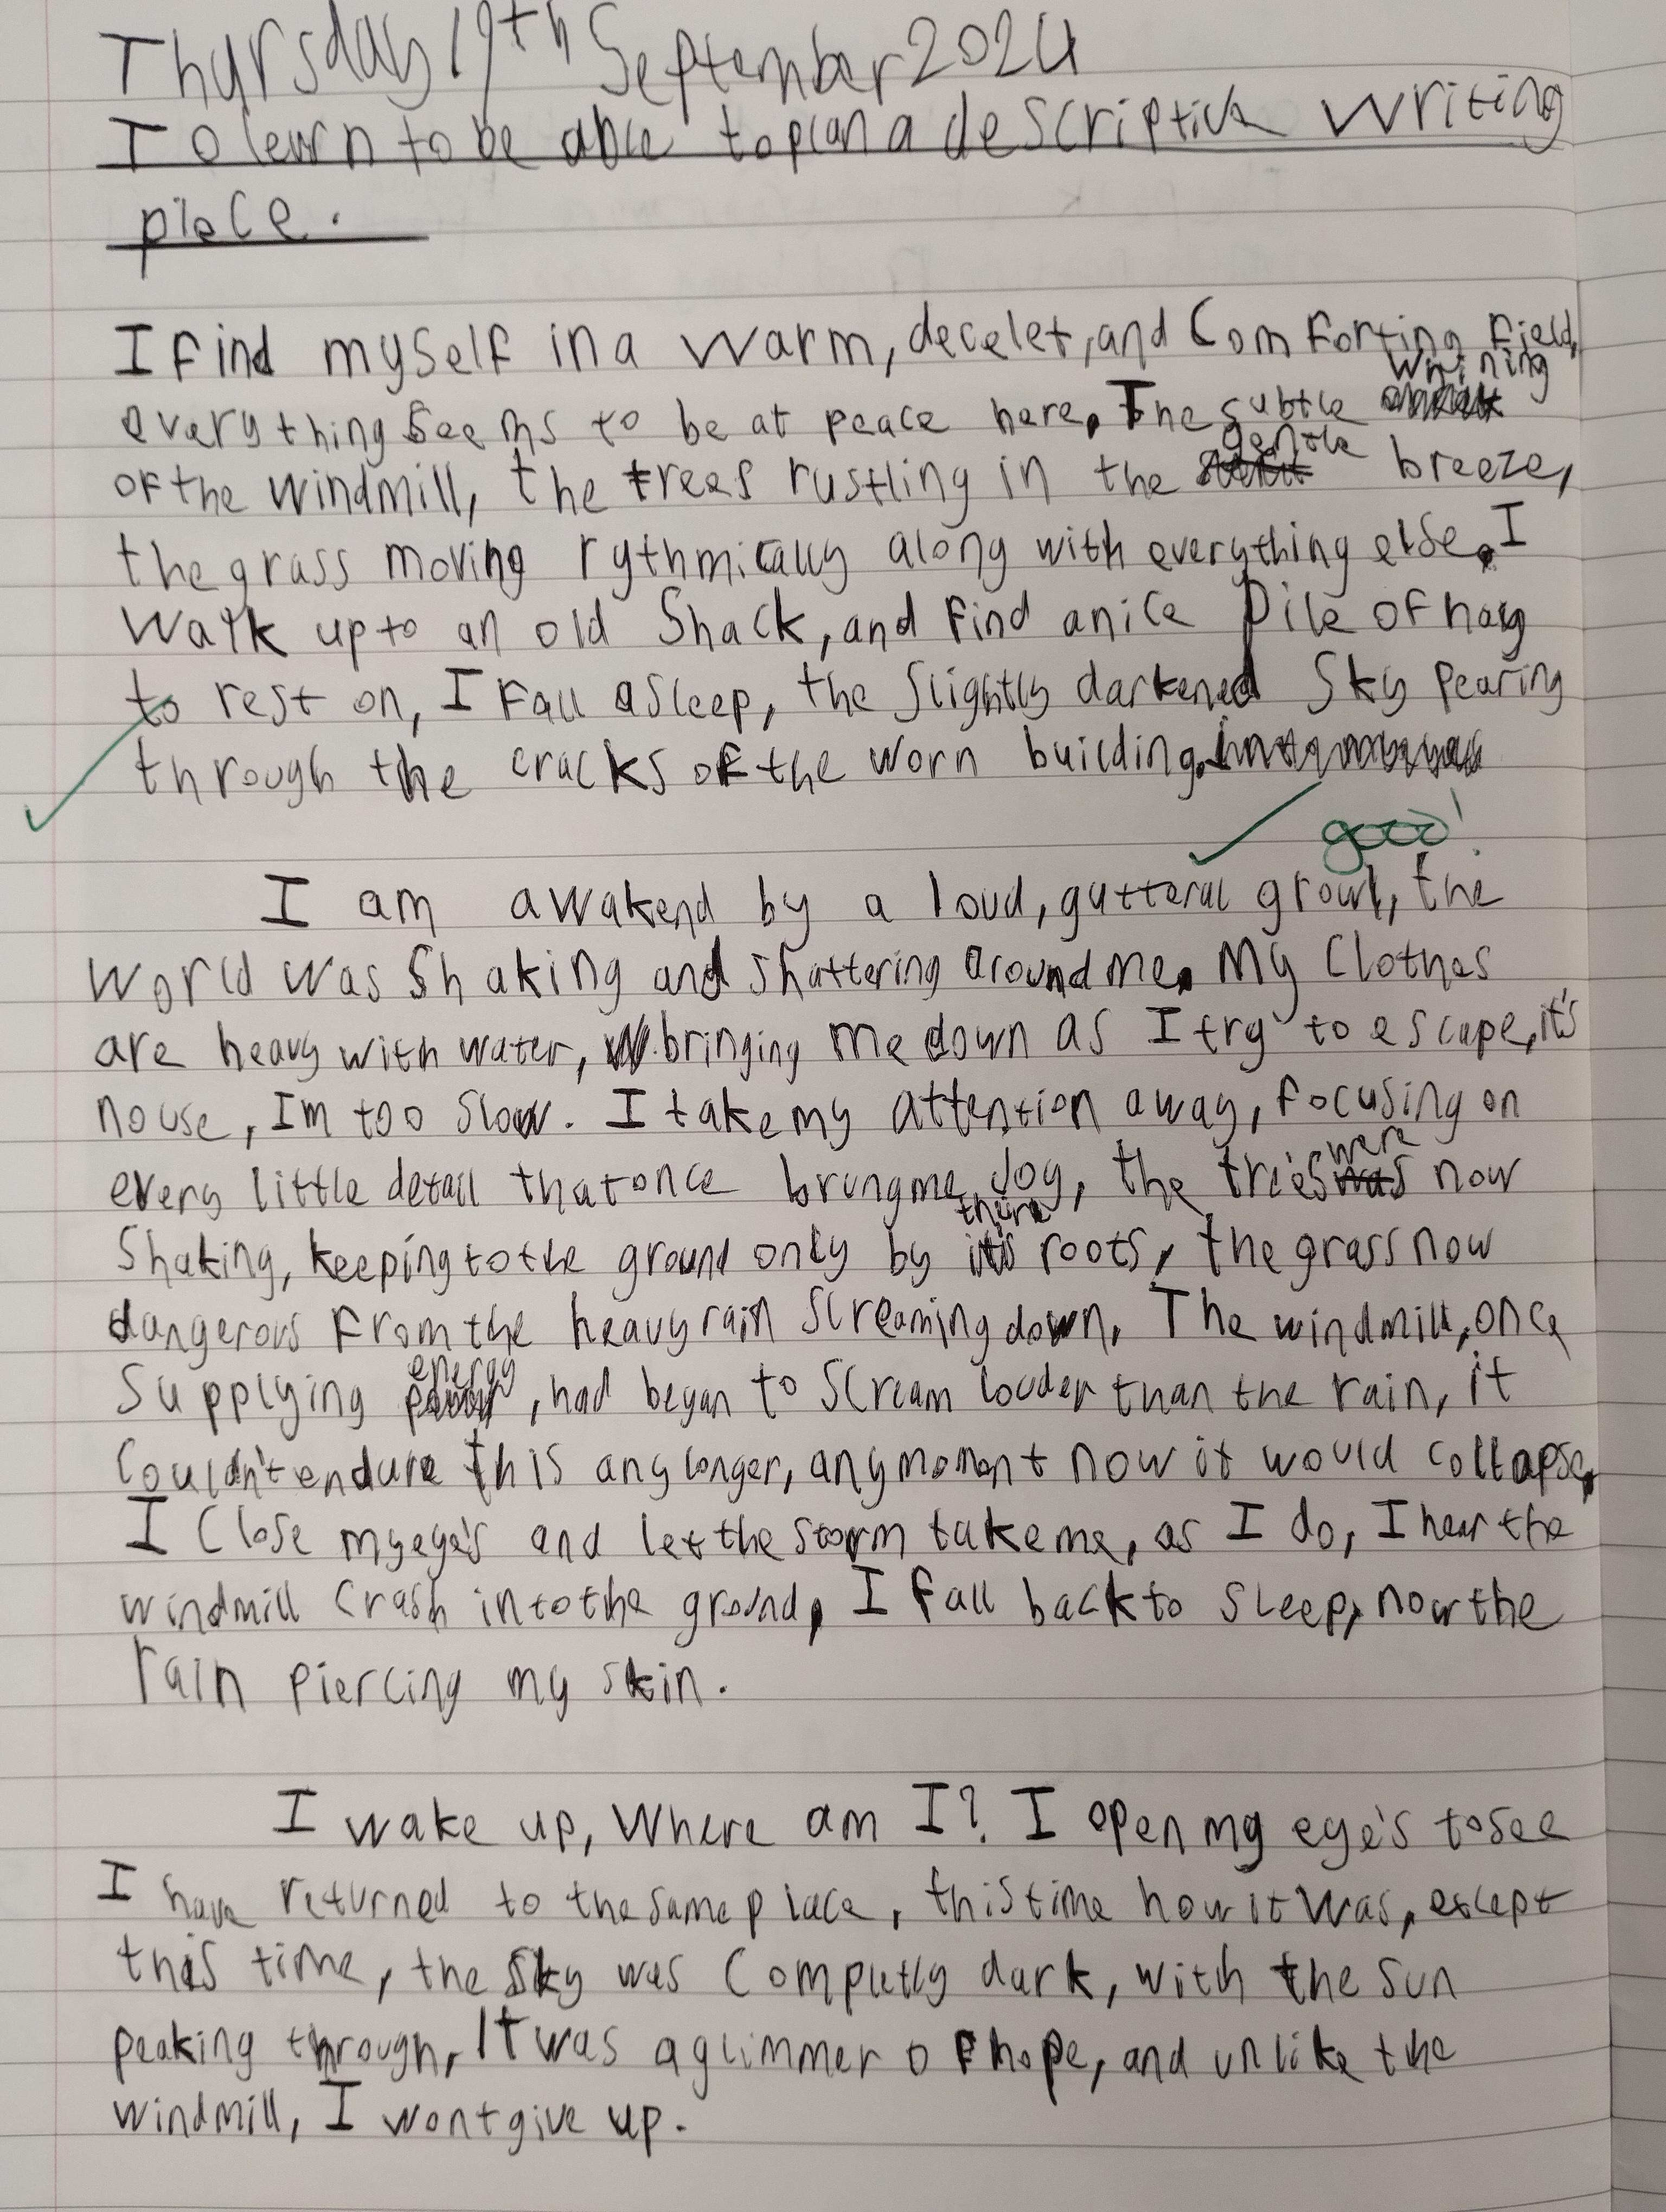 Thursday 19th September 2024
To learn to be able to plan a descriptive writing
piece.
I find myself in a warm, decelet, and comforting field,
everything seems to be at peace here. The subtle whining
of the windmill, the trees rustling in the gentle breeze,
the grass moving rythmically along with everything else. I
walk up to an old shack, and find a nice pile of hay
to rest on, I fall asleep, the slightly darkened sky pearing
through the cracks of the worn building.
good!
I am awakend by a loud, gutteral growl, the
world was shaking and shattering around me. My clothes
are heavy with water, bringing me down as I try to escape, it's
no use, Im too slow. I take my attention away, focusing on
every little detail that once brung me joy, the trees were now
shaking, keeping to the ground only by their roots, the grass now
dangerous from the heavy rain screaming down. The windmill, once
supplying energy, had began to scream louder than the rain, it
couldn't endure this any longer, any moment now it would collapse.
I close my eye's and let the storm take me, as I do, I hear the
windmill crash into the ground, I fall back to sleep, now the
rain piercing my skin.
I wake up, Where am I? I open my eye's to see
I have returned to the same place, this time how it was, except
this time, the sky was completly dark, with the sun
peaking through, It was a glimmer of hope, and unlike the
windmill, I wont give up.